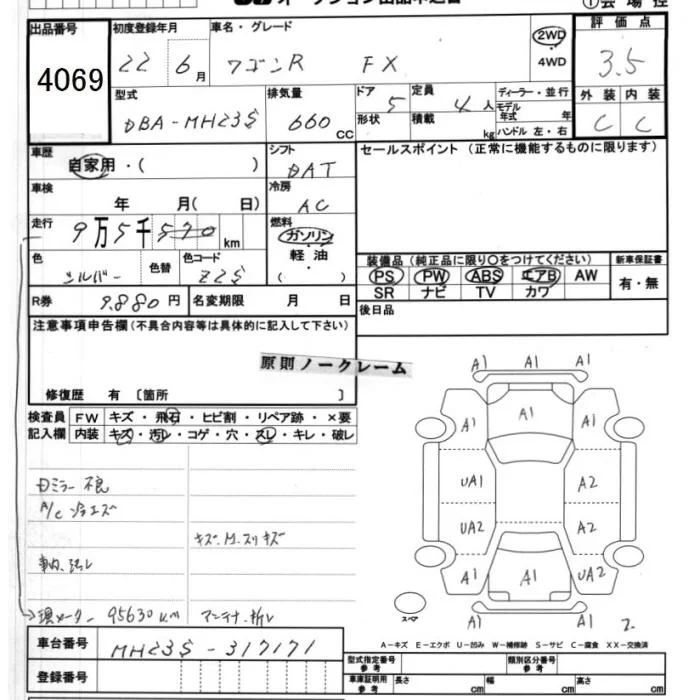 オークション出品申込書
①会場控
出品番号
4069
初度登録年月
22年 6月
車名・グレード
ワゴンR FX
2WD
4WD
評価点
3.5
型式
DBA-MH23S
排気量
660 CC
ドア 5
形状
定員 4人
積載 kg
ディーラー・並行
モデル年式 年
ハンドル 左・右
外装 内装
C C
車歴
自家用・( )
シフト
DAT
セールスポイント (正常に機能するものに限ります)
車検
年 月( 日)
冷房
AC
走行
9万5千570 km
燃料
ガソリン
軽油
( )
色
シルバー
色替
色コード
Z2S
装備品 (純正品に限り○をつけてください)
PS PW ABS エアB AW
SR ナビ TV カワ
新車保証書
有・無
R券 9.880円
名変期限 月 日
後日品
注意事項申告欄 (不具合内容等は具体的に記入して下さい)
原則ノークレーム
修復歴 有 [箇所 ]
検査員記入欄
FW キズ・飛石・ヒビ割・リペア跡・×要
内装 キズ・汚レ・コゲ・穴・スレ・キレ・破レ
Dミラー不良
A/C 冷エズ
キズ.M.スリキズ
車内.汚レ
→現メーター 95630KM アンテナ.折レ
A1 A1 A1
A1 A1 A1
UA1 A2
UA2 A2
A1 A1 UA2
A1 A1
スペア
2.
A-キズ E-エクボ U-凹み W-補修跡 S-サビ C-腐食 XX-交換済
車台番号
MH23S-317171
登録番号
型式指定番号 参考
類別区分番号 参考
車庫証明用 参考
長さ cm
幅 cm
高さ cm